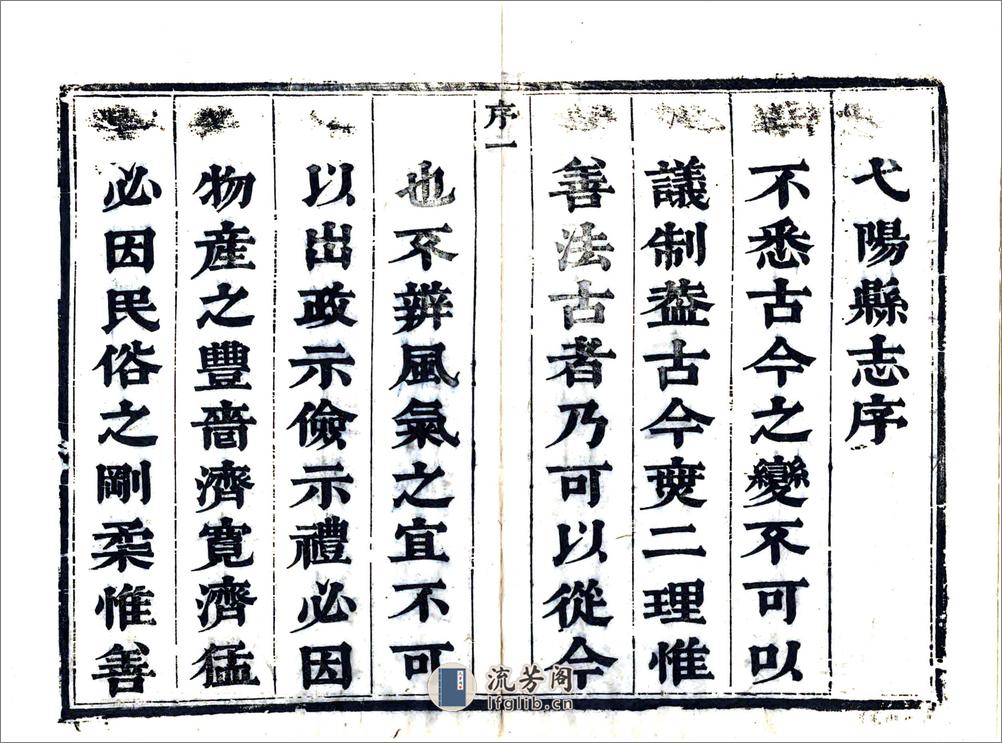 弋陽縣志序
不悉古今之變不可以
議制葢古今無二理惟
善法古者乃可以從今
序一
也不辨風氣之宜不可
以出政示儉示禮必因
物產之豐嗇濟寬濟猛
必因民俗之剛柔惟善
流芳阁
lfglib.cn